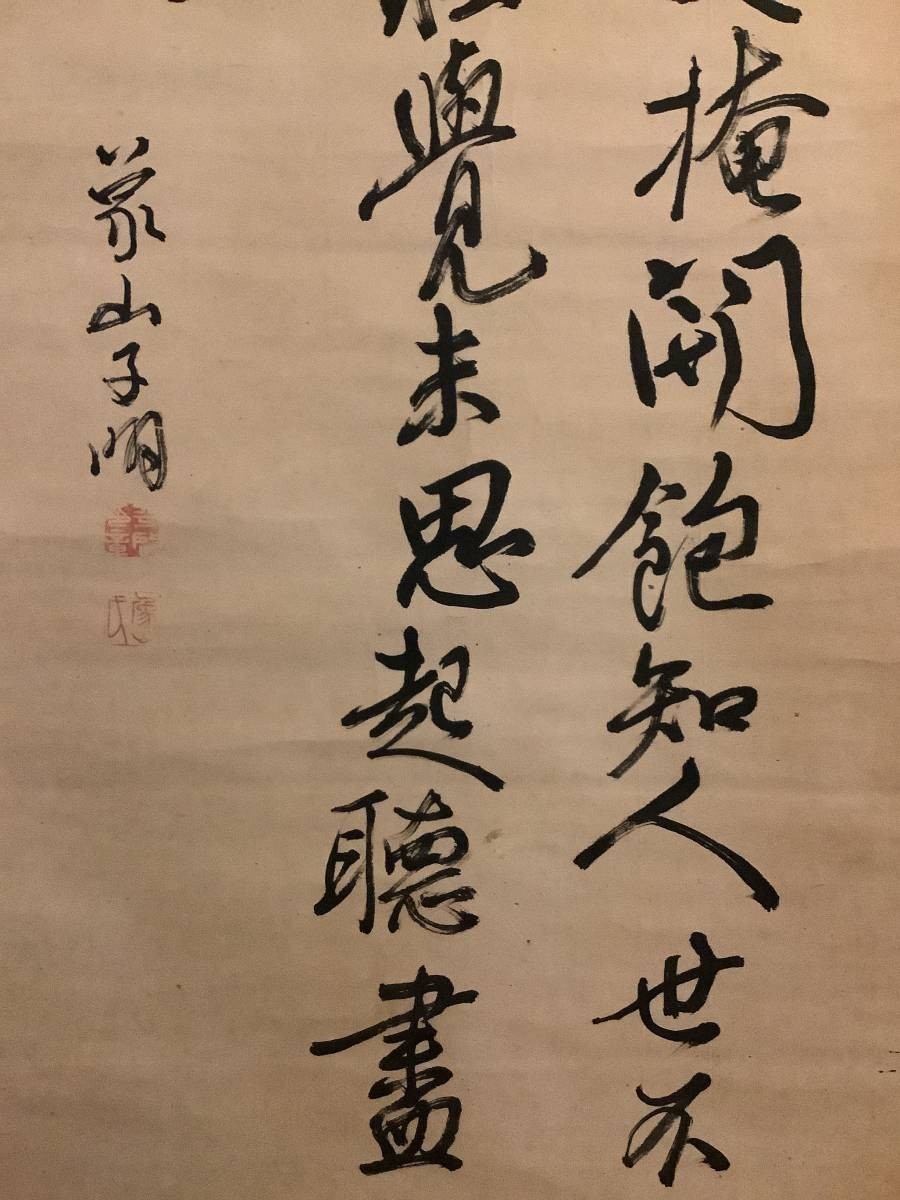 掩開飽知人世不
覺未思起聽盡
蒙山子明